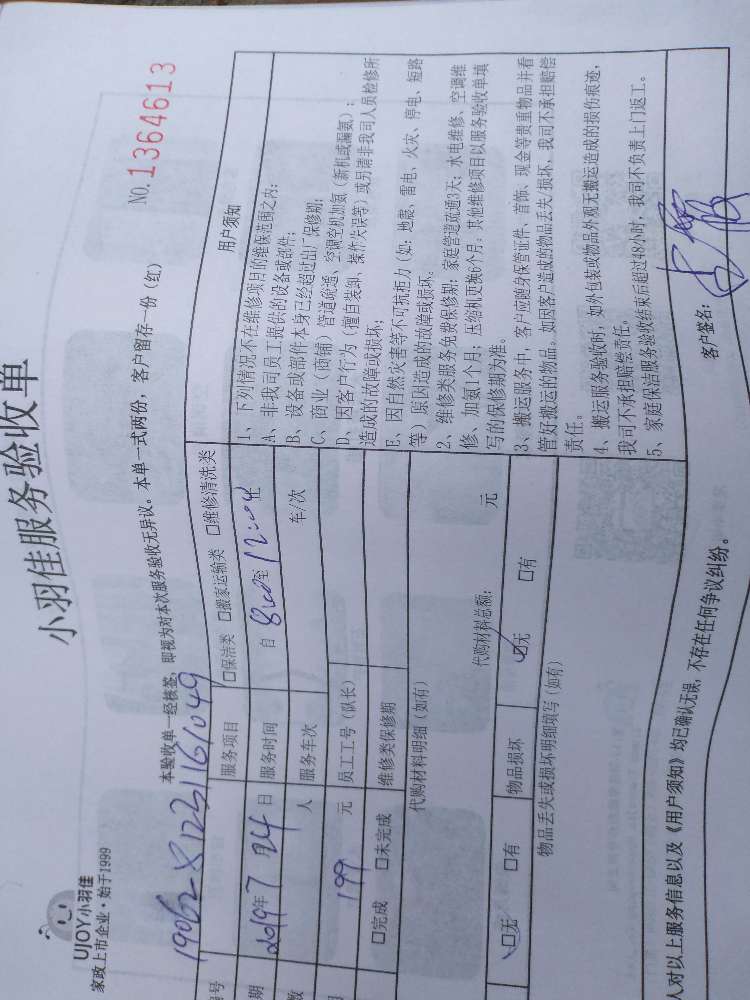 UJOY小羽佳
家政上市企业·始于1999
小羽佳服务验收单
本验收单一经核签，即视为对本次服务验收无异议。本单一式两份，客户留存一份（红）
NO.1364613
服务项目 □保洁类 □搬家运输类 □维修清洗类
2019年7月24日 服务时间 自 8:00 至 12:00 止
人 服务车次 车/次
199 元 员工工号（队长）
□完成 □未完成 维修类保修期
代购材料明细（如有）
代购材料总额： 元
□无 □有 物品损坏 □无 □有
物品丢失或损坏明细填写（如有）
用户须知
1、下列情况不在维修项目的维保范围之内：
A、非我司员工提供的设备或部件；
B、设备或部件本身已经超过出厂保修期；
C、商业（商铺）管道疏通、空调空机加氨（新机或漏氨）；
D、因客户行为（擅自装卸、操作失误等）或另请非我司人员检修所
造成的故障或损坏；
E、因自然灾害等不可抗拒力（如：地震、雷电、火灾、停电、短路
等）原因造成的故障或损坏。
2、维修类服务免费保修期：家庭管道疏通3天；水电维修、空调维
修、加氨1个月；压缩机更换6个月。其他维修项目以服务验收单填
写的保修期为准。
3、搬运服务中，客户应随身保管证件、首饰、现金等贵重物品并看
管好搬运的物品。如因客户造成的物品丢失/损坏，我司不承担赔偿
责任。
4、搬运服务验收时，如外包装或物品外观无搬运造成的损伤痕迹，
我司不承担赔偿责任。
5、家庭保洁服务验收结束后超过48小时，我司不负责上门返工。
人对以上服务信息以及《用户须知》均已确认无误，不存在任何争议纠纷。
客户签名：